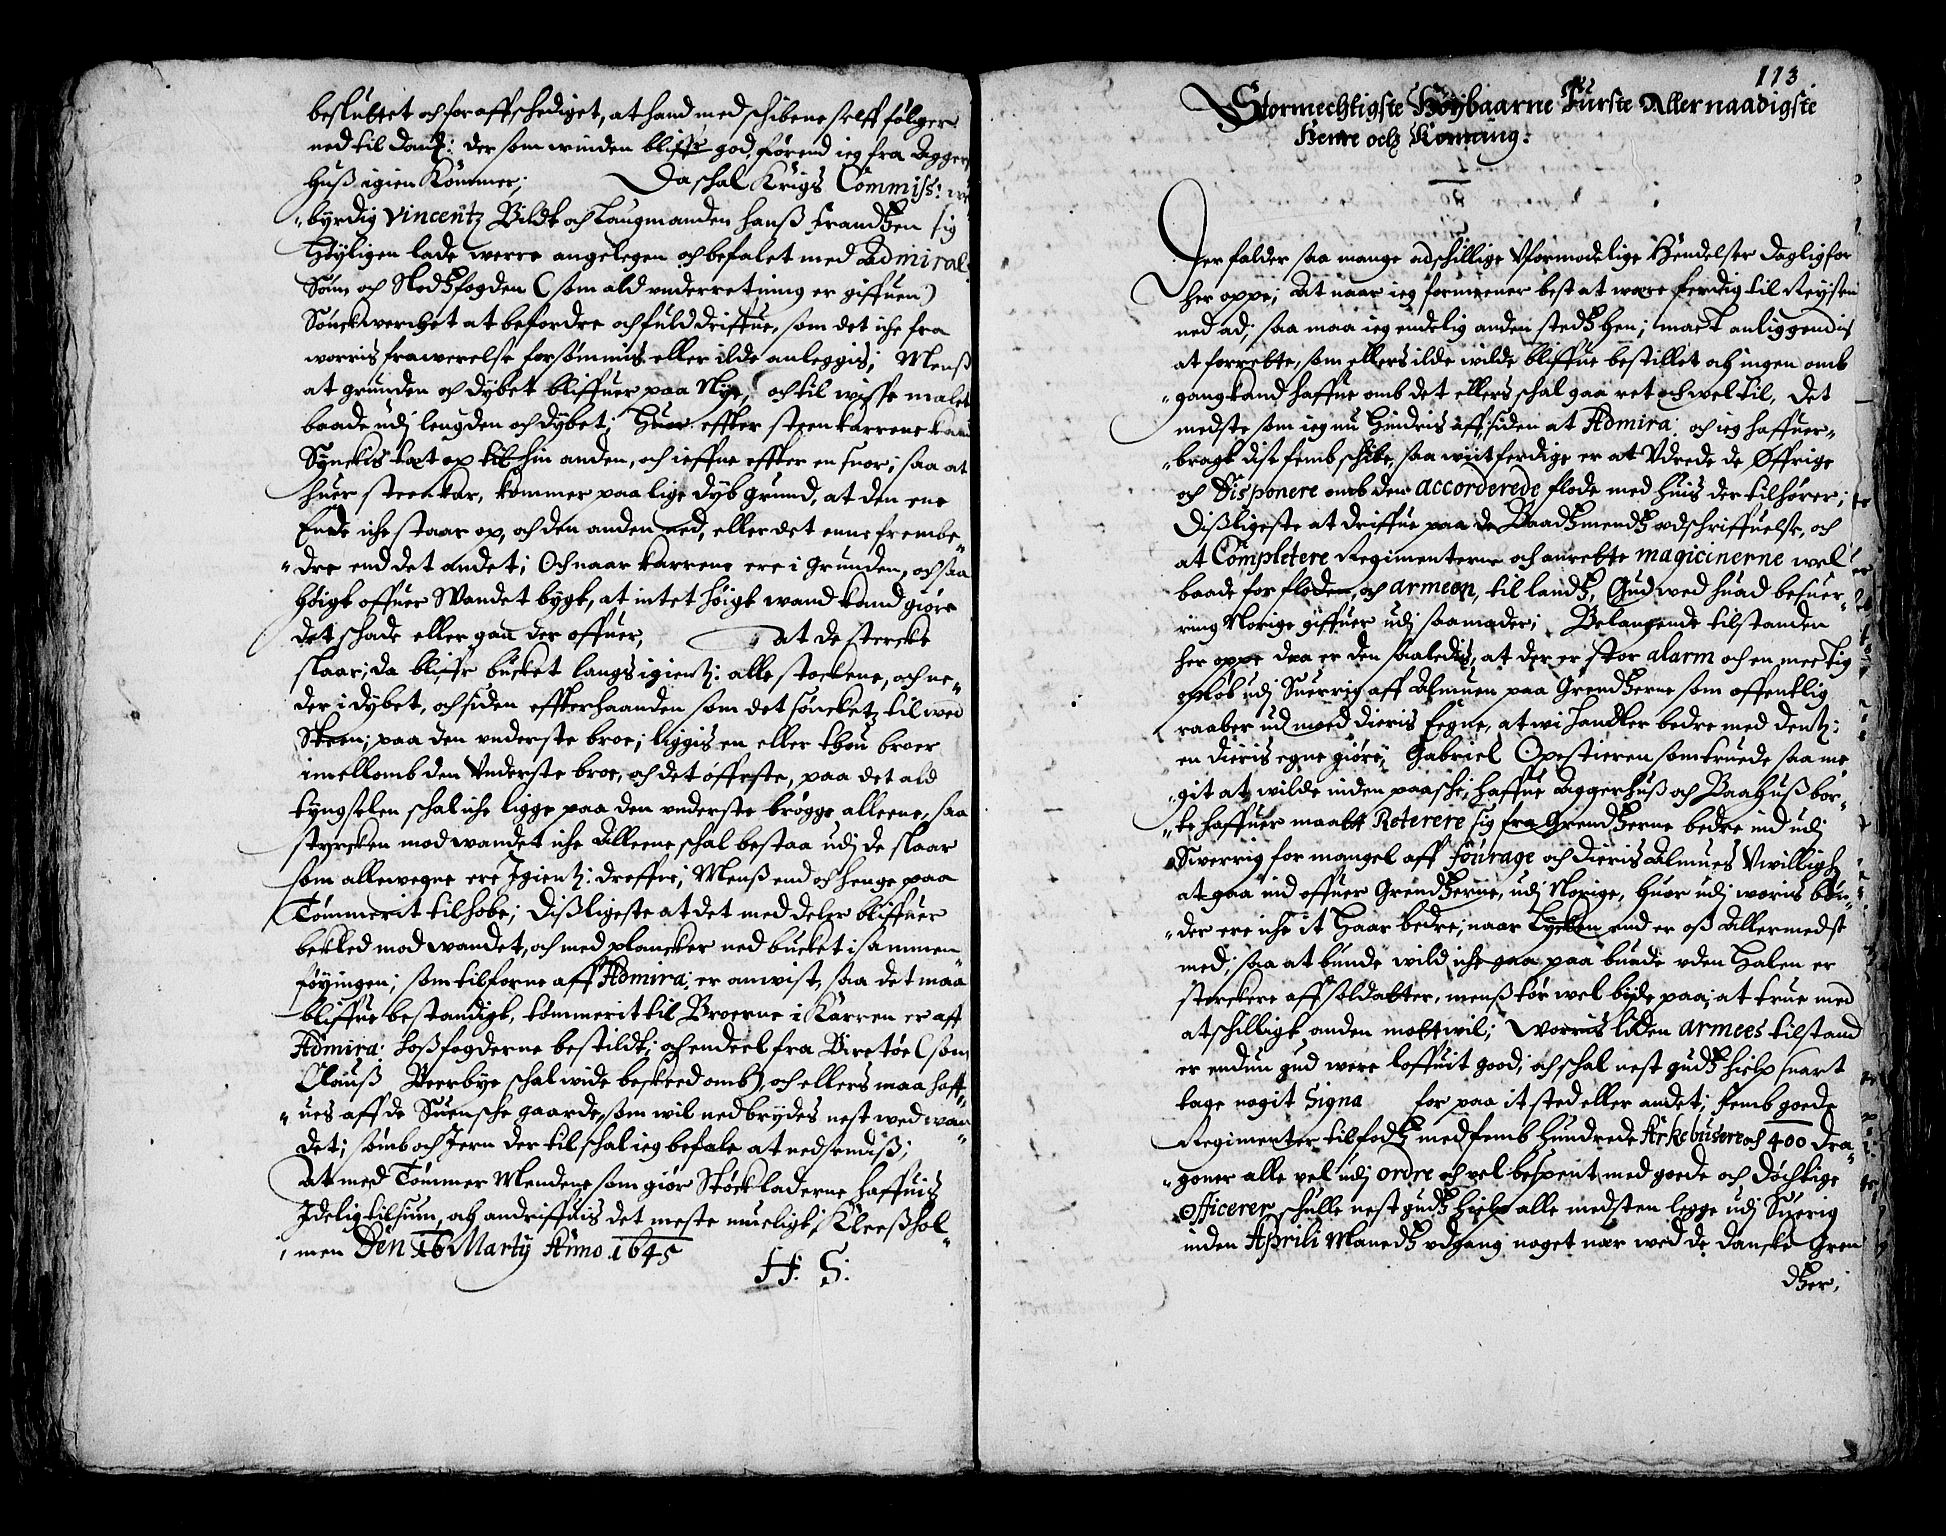 besluttet och foraffschediget, at hand med schibene self følger
ned til Danꝭ: der som winden bliffr god, førend ieg fra Agger
Huß igien Kommer; Da schal Krigs Commiss:
byrdig Vincentz Bildt och Laugmanden Hanß Frandtzen sig
Høyligen lade werre angelegen och befalet med Admiral
Søun och Slodtzfogden (som ald vnderretning er giffuen)
Sønckwerchet at befordre och fuld driffue, som det iche fra
worris frawerelse forsømmis eller ilde anleggis; Menß
at grunden och dybet bliffuer paa Nye, och til wisse malet
baade udj lengden och dybet; Huor effter steenkarrene kand
Synckis tæt op til hin anden, och ieffne effter en snor; saa at
huer steenkar, kommer paa lige dyb grund, at den ene
Ende iche staar op, och den anden ned, eller det enne frembe"
"dre end det andet; Och naar karrene ere i Grunden, och saa
høigt offuer Wandet bygt, at intet høigt wand kand giøre
det schade eller gaa der offuer, at de sterckt
slaar; da bliffr bucket langs igientz: alle stockene, och ne"
der i dybet, och siden effterhaanden som det sønckes til wed
Steen; paa den vnderste broe; liggis en eller thou broer
imellomb den Vnderste broe, och det offerste, paa det ald
tyngselen schal iche ligge paa den vnderste brøgge alleene, saa
styrcken mod wandet iche Alleene schal bestaa udj de slaar
som allewegne ere Igientz: dreffne; Menß end och henge paa
Tømmerit tilhobe; Dißligeste at det med deler bliffuer
bekled mod wandet, och med plancker ned bucket i sammen
føyingen; som tilforne aff Admira: er anwist, saa det maa
bliffue bestandigt, tømmerit til Broerne i Karren er aff
Admira: hoß fogderne bestildt; och endeel fra Biretøe (som
Olauß Beerbye schal wide beskeed omb), och ellers maa haff"
"ues aff de Suensche gaarde, som wil nedbrydes nest wed wan"
det; sømb och Jern der til schal ieg befale at nedsendiß;
At med Tømmer Mendene som giør Støckladerne haffuis
Idelig tilsiun, och andriffuis det meste mueligt; Kleeßhol"
men Den 16 Marty Anno 1645
H: S:
113
Stormechtigste Høybaarne Furste Allernaadigste
Herre och Konning:
Der falder saa mange adschillige Vformodelige Hendelser daglig for
her oppe; At naar ieg formeener best at wære ferdig til Reysen
ned ad; saa maa ieg endelig anden stedtz hen; mact anliggendis
at forrette, som ellers ilde wilde bliffue bestillet och ingen omb
"gang kand haffue omb det ellers schal gaa ret och wel til, Det
medste som ieg nu Hindris aff, siden at Admira: och ieg haffuer"
"bragt dise femb schibe, saa wiit ferdige er at Vdrede de Øffrige
och Disponere omb den accorderede flode med huis der tilhører;
Dißligeste at driffue paa de Baadtzmendtz vdschriffuelse, och
at Completere Regimenterne och anrette magicinerne wel
baade for floden, och armeen, til landtz, Gud wed huad besuer"
ring Norige giffuer udj saa mader; Belangende tilstanden
her oppe daa er den saaledis, at der er stor alarm och en mectig
opløb udj Suerrig aff Almuen paa Grendtzerne som offentlig
raaber ud moed dieris egne, at wi handler bedre med dentz:
en dieris egne giøre; Gabriel Oxestieren som truede saa me
"git at wilde inden paaske; haffue Aggerhuß och Baahuß bor"
"te haffuer maatt Reterere sig fra Grendtzerne bedre ind udj
Swerrig for mangel aff fourage och dieris Almues Vwillighꝫ
at gaa ind offuer Grendtzerne, udj Norige, huor udj woris bøn"
"der ere iche it Haar bedre; naar Lycken end er oß Allermedst
med; saa at bunde wild iche gaa paa baade vden Halen er
sterckere aff soldatter, menß tør wel byde paa; at true med
atschilligt anden motwil; Worris liden armees tilstand
er endnu gud were loffuit good; och schal nest gudtz hielp snart
tage nogit Signa for paa it sted eller andet; femb goede
Regimenter til fodtz med femb hundrede Arkebusere och 400 Dra"
"goner alle vel udj ordre och vel bespent med goede och døchtige
Officerer schulle nest gudtz hielp alle medsten legge udj Suerig
inden Aprili Manedtz vdgang noget nær wed de danske Gren
dtzer;